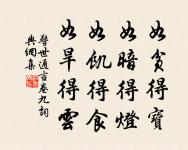 如貧得寶
如暗得燈
如飢得食
如旱得雲
警世通言卷九詞
典網集